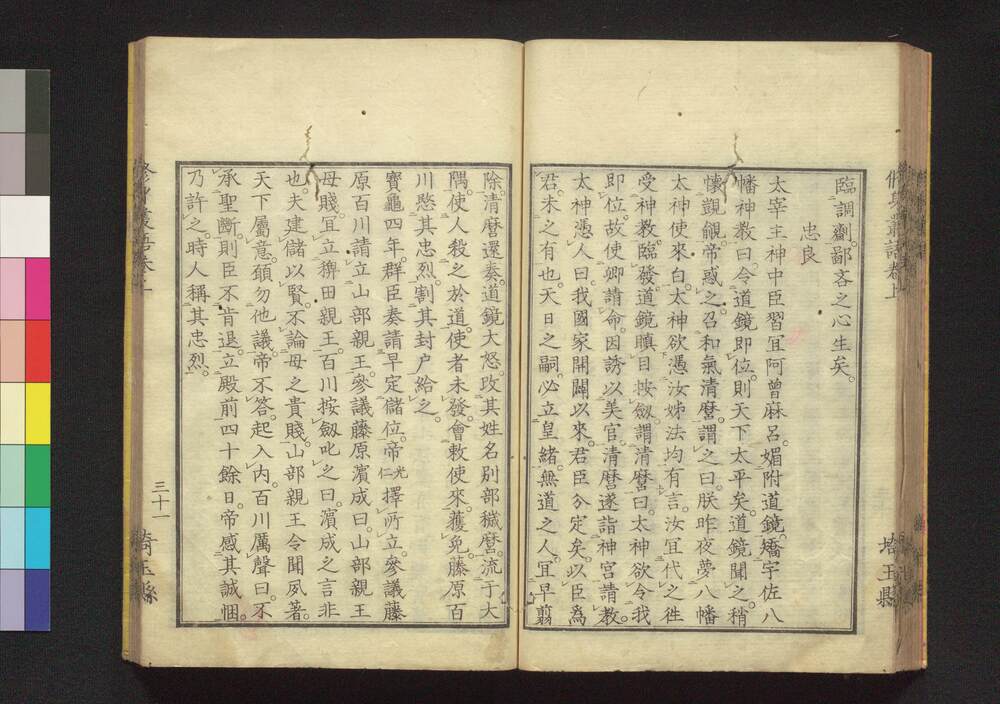 臨調劑。鄙吝之心生矣。
忠良
太宰主神中臣習宜阿曾麻呂。媚附道鏡。矯宇佐八
幡神教曰。令道鏡即位。則天下太平矣。道鏡聞之。稍
懷覬覦。帝惑之。召和氣清麿。謂之曰。朕昨夜夢八幡
太神使來白。太神欲憑汝姊法均有言。汝宜代之往
受神教。臨發。道鏡瞋目按劔。謂清麿曰。太神欲令我
即位。故使卿請命。因誘以美官。清麿遂詣神宮請教。
太神憑人曰。我國家開闢以來。君臣分定矣。以臣爲
君。未之有也。天日之嗣。必立皇緒。無道之人。宜早翦
除。清麿還奏。道鏡大怒。攺其姓名別部穢麿。流于大
隅。使人殺之於道。使者未發。會敕使來。獲免。藤原百
川愍其忠烈。割其封户給之。
寶龜四年。群臣奏請早定儲位。帝光仁擇所立。參議藤
原百川請立山部親王。參議藤原濱成曰。山部親王
母賤。宜立稗田親王。百川按劔叱之曰。濱成之言非
也。夫建儲以賢。不論母之貴賤。山部親王令聞夙著。
天下屬意。願勿他議。帝不答起入内。百川厲聲曰。不
承聖斷。則臣不肯退。立殿前四十餘日。帝感其誠悃。
乃許之。時人稱其忠烈。
三十一
埼玉縣
埼玉縣